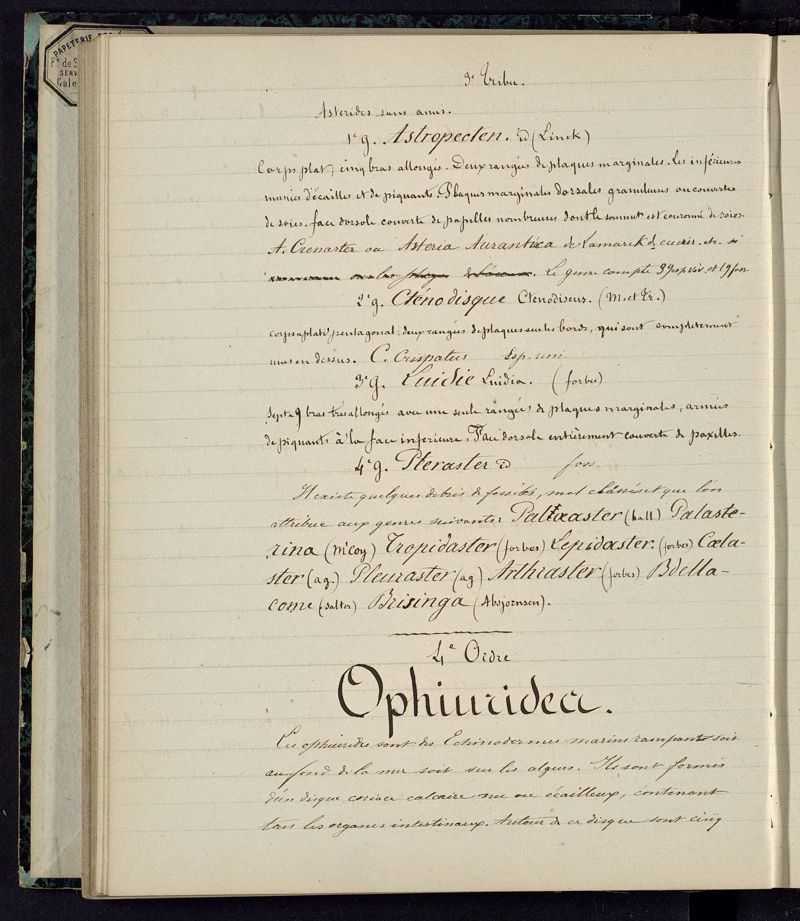 PAPETERIE
Fg de S
SERV
Gale
3e Tribu.
Asterides sans anus.
1e g. Astropecten. id (Linck)
Corps plat; cinq bras allongés. Deux rangées de plaques marginales. Les inférieures
munies d'écailles et de piquants. Plaques marginales dorsales granuleuses ou couvertes
de soies. face dorsale couverte de papilles nombreuses dont le sommet est couronné de soies.
A. Crenaster ou Asteria Aurantica de Lamarck
Le genre compte 39 esp viv. et 19 fos.
2e g. Cténodisque Ctenodiscus. (M. et Tr.)
corps aplati pentagonal; deux rangées de plaques sur les bords, qui sont completement
nues en dessus. C. Crispatus Esp. uni
3e g. Luidie Luidia. (forbes)
Sept a 9 bras tres allongés avec une seule rangées de plaques marginales, armées
de piquants à la face inferieure. Face dorsale entièrement couverte de paxilles.
4e g. Pteraster id foss.
Il existe quelques debris de fossiles, mal classés et que l'on
attribue aux genres suivants: Palæaster (hall) Palaste-
rina (McCoy) Tropidaster (forbes) Lepidaster. (forbes) Cœla-
ster (ag.) Pleuraster (ag) Arthraster (forbes) Bdella-
come (Salter) Brisinga (Absjornsen).
4e Ordre
Ophiuridea.
Les ophiurides sont des Echinodermes marins rampants soit
au fond de la mer soit sur les algues. Ils sont formés
d'un disque coriace calcaire nu ou écailleux, contenant
tous les organes intestinaux. Autour de ce disque sont cinq